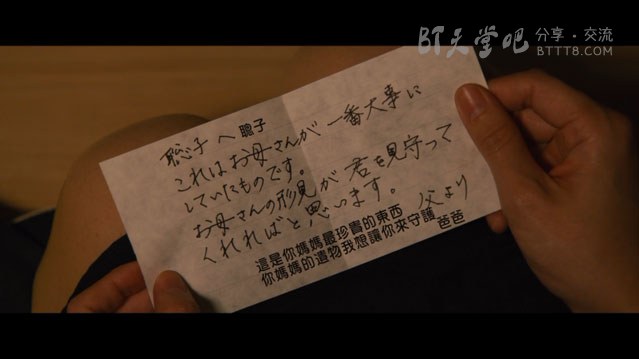 BT天堂吧 分享·交流
BTTT8.COM
聡子へ 聰子
これはお母さんが一番大事に
していたものです。
お母さんの形見が君を見守って
くれればと思います。
父より
這是你媽媽最珍貴的東西
你媽媽的遺物我想讓你來守護
爸爸